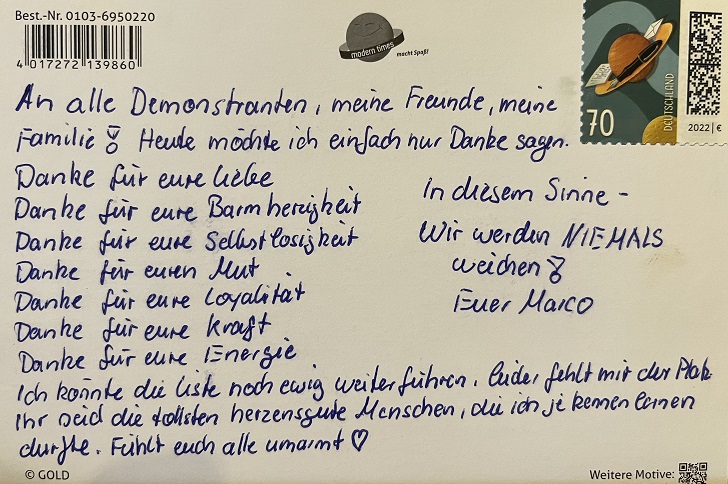 Best.-Nr. 0103-6950220
4 017272 139860
modern times
macht Spaß!
DEUTSCHLAND
70
2022 | €
An alle Demonstranten, meine Freunde, meine
Familie! Heute möchte ich einfach nur Danke sagen.
Danke für eure Liebe
Danke für eure Barmherzigkeit
Danke für eure Selbstlosigkeit
Danke für euren Mut
Danke für eure Loyalität
Danke für eure Kraft
Danke für eure Energie
In diesem Sinne -
Wir werden NIEMALS
weichen!
Euer Marco
Ich könnte die Liste noch ewig weiterführen, leider fehlt mir der Platz
Ihr seid die tollsten herzensgute Menschen, die ich je kennenlernen
durfte. Fühlt euch alle umarmt ♡
© GOLD
Weitere Motive: